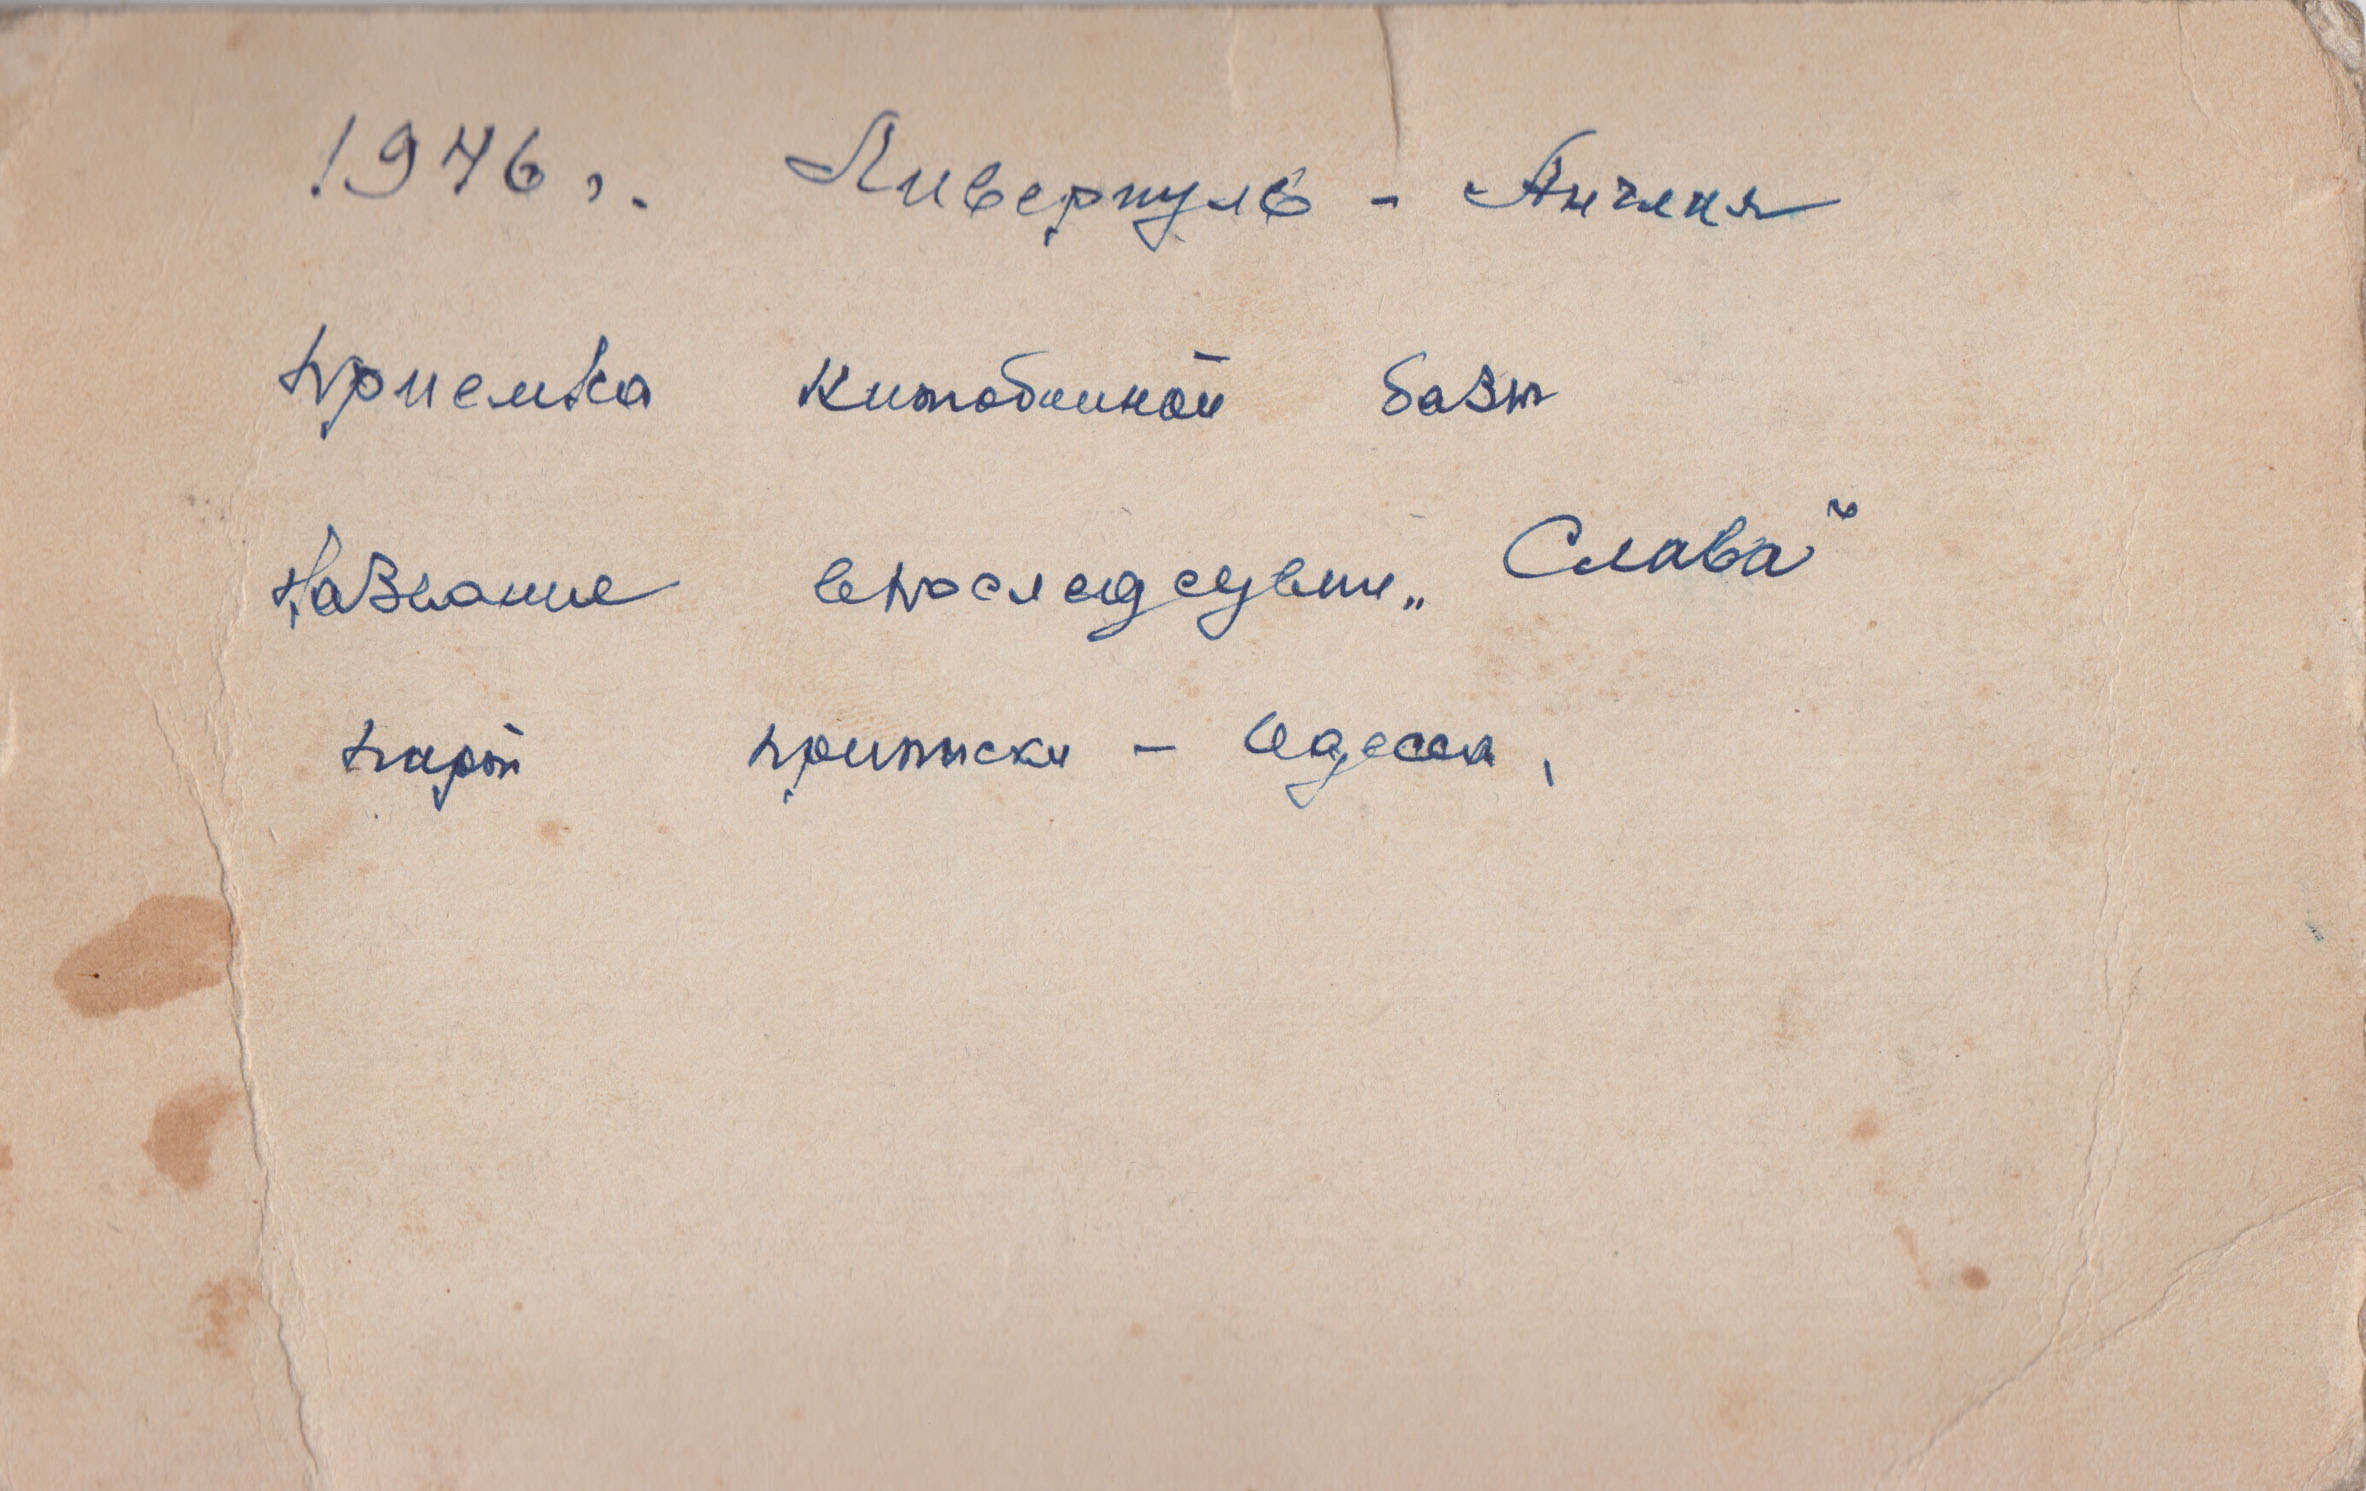 1946 г. Ливерпуль - Англия
приемка китобойной базы
название впоследствии „Слава"
порт приписки - Одесса,